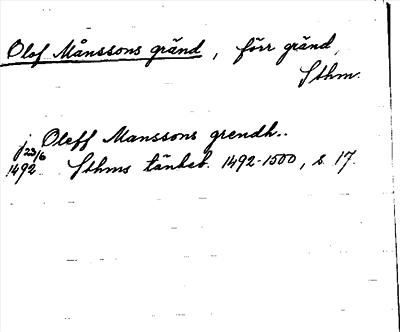 Olof Månssons gränd, förr gränd,
Sthm.
j Oleff Manssons grendh..
23/6
1492. Sthms tänkeb. 1492-1500, s. 17.